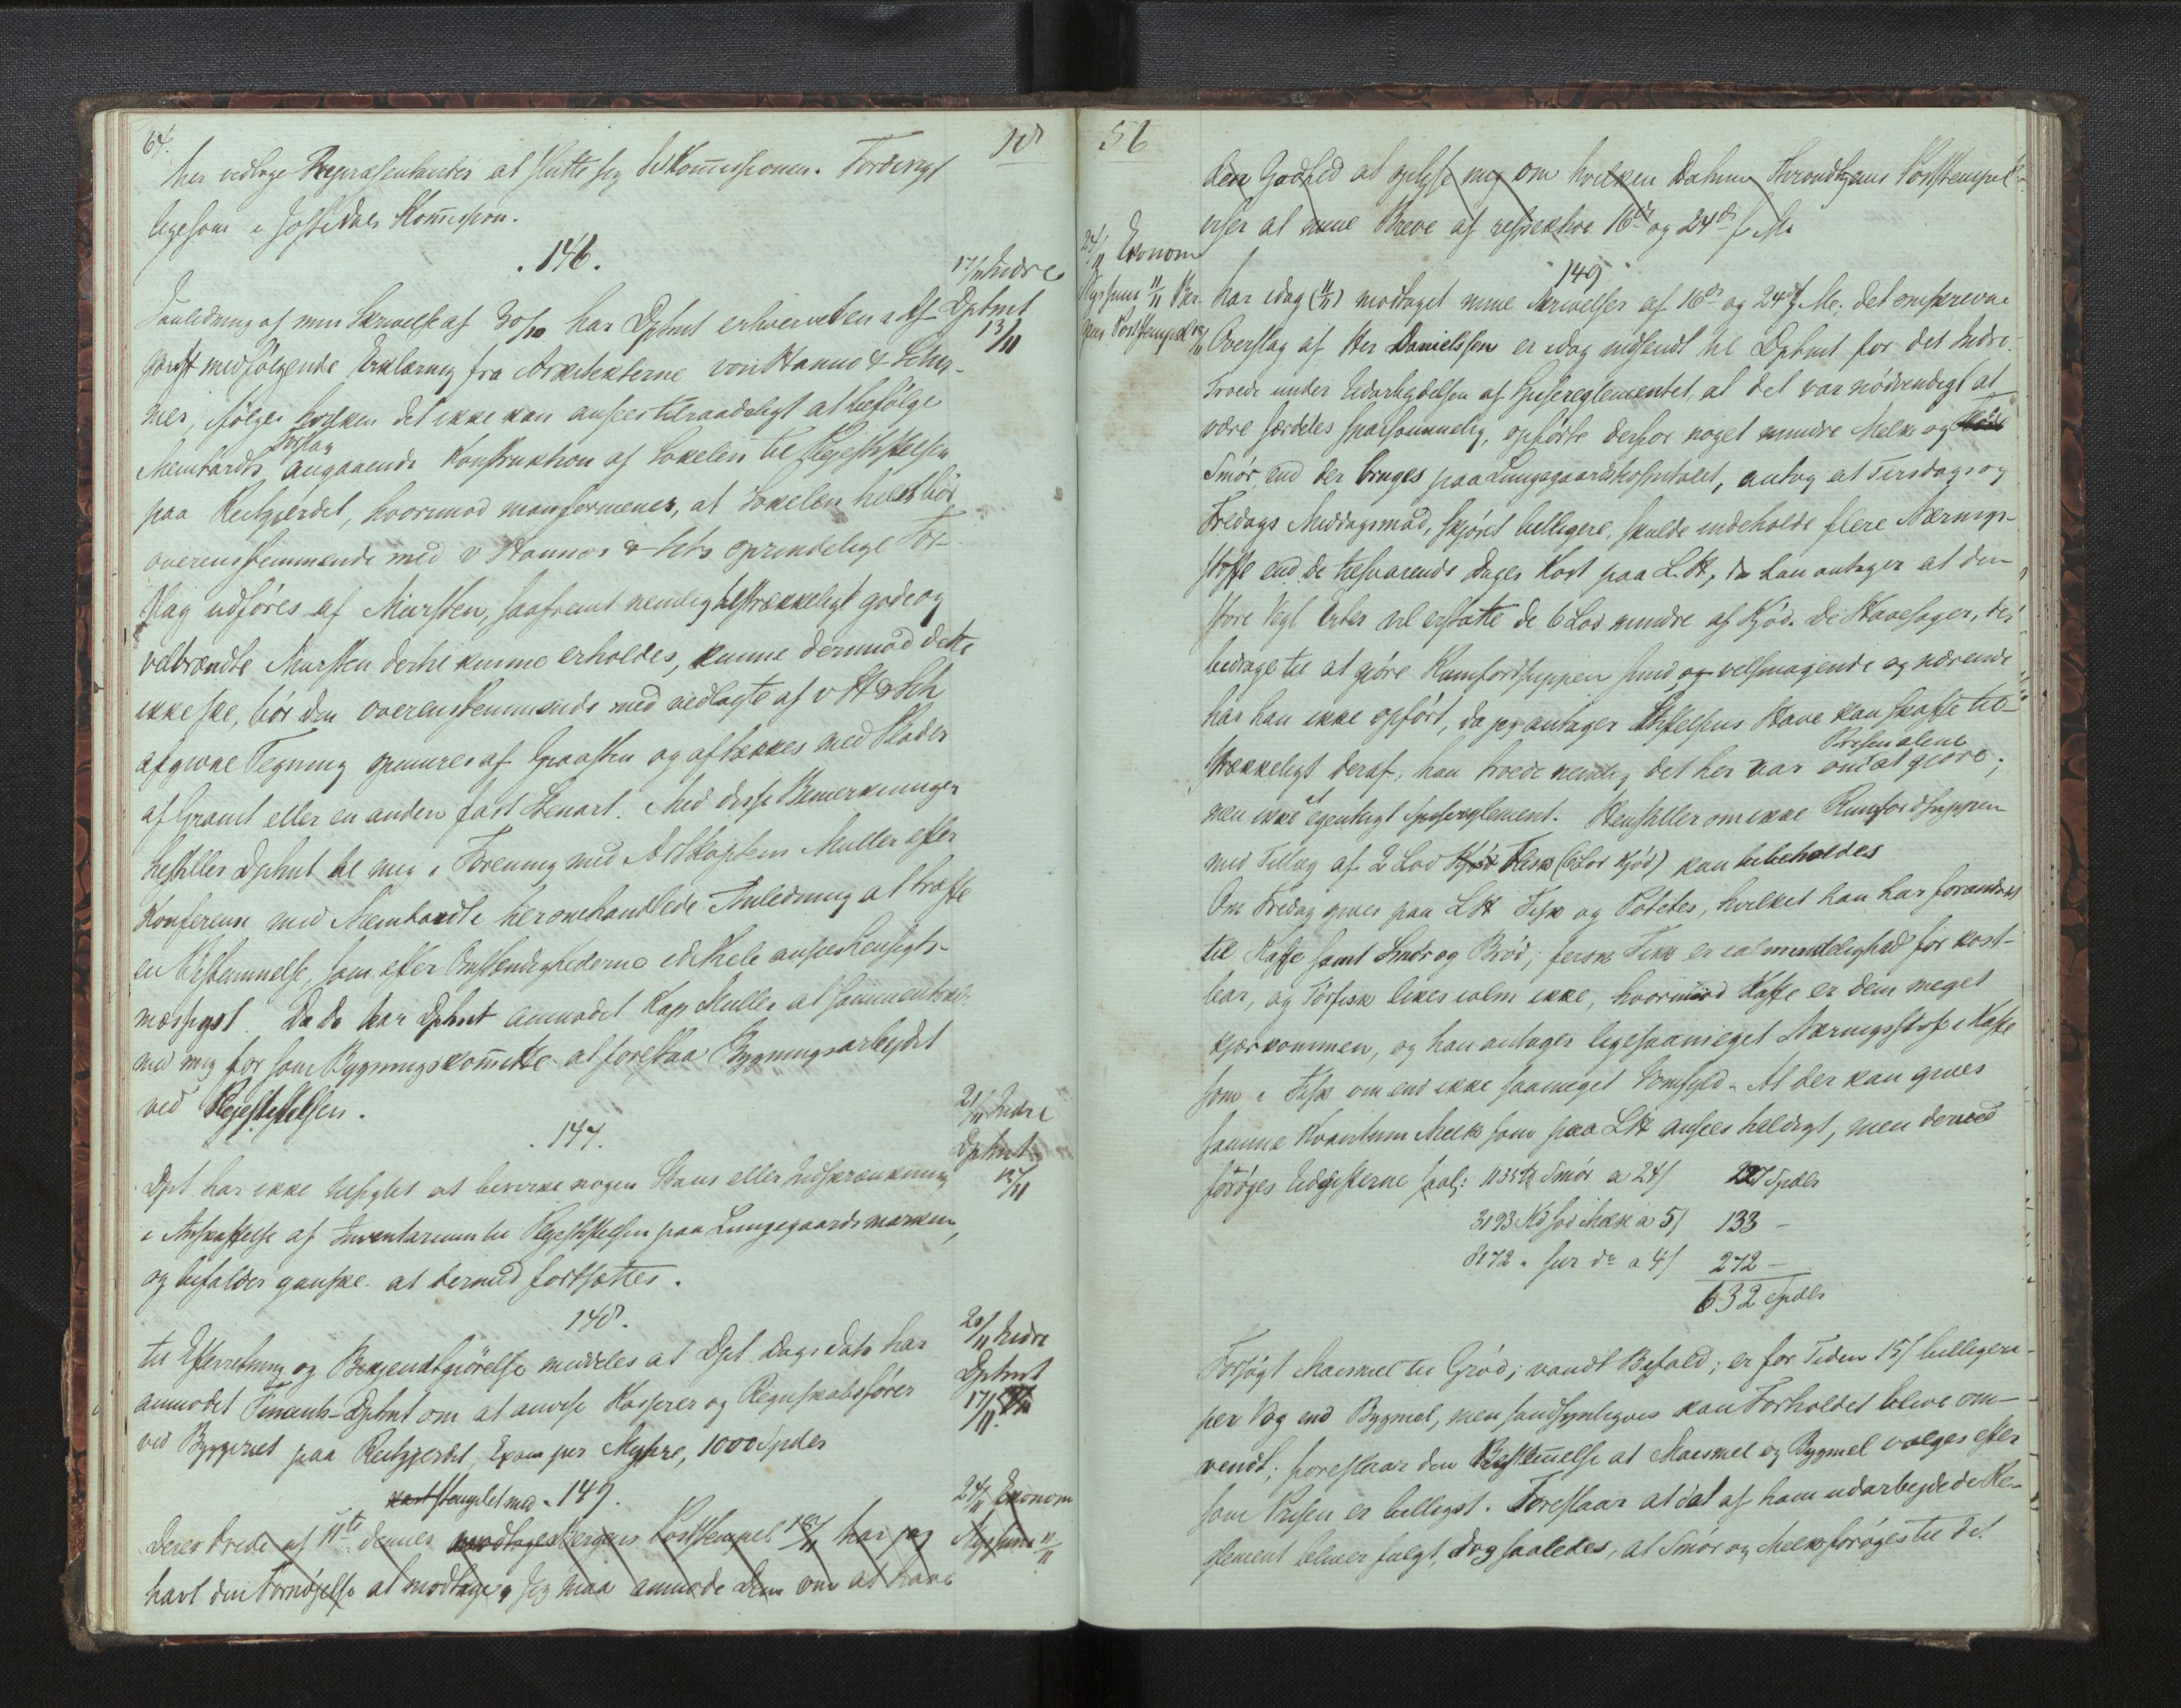 64.
18
her vedtage Repræsentanter at slutte sig til Kom̅issionen. Forderigt
ligesom i Jostedals Kom̅ission.
. 146.
17/11 Indre
Dptmt
13/11
Anledning af min Skrivelse af 30/10 har Dptmt erhvervet en i Af-
skrift medfølgende Erklæring fra Arkitekterne von Hanno & Schir-
mer, ifølge hvilken det ikke kan ansees tilraadeligt at befølge
Meinhardts Forslag angaaende Konstruktion af Sokelen til Plejestiftelsen
paa Reitgjerdet, hvorimod man formener, at Sokelen helst bør
overensstemmende med v Hannos & Schs oprindelige For-
slag udføres af Mursten, saafremt nemlig tilstrækkeligt gode og
velbrændte Mursten dertil kunne erholdes, kunne derimod dette
ikke ske, bør den overensstemmende med vedlagte af v H & Sch
afgivne Tegning opmures af Graasten og aftækkes med Plader
af Granit eller en anden fast Stenart. Med disse Bemærkninger
hestiller Dptmt til mig i Forening med Artkaptein Muller efter
Konferense med Meinhardt i heromehandlede Anledning at træffe
en Bestemmelse, som efter Omstændighederne i det Hele ansees hensigts-
mæssigst. Da Do har Dptmt anmodet Kap Muller at sammentræde
med mig for som Bygningskom̅itte at forestaa Bygningsarbejdet
ved Plejestiftelsen.
. 147.
21/11 Indre
Dptmt
17/11
Dpt har ikke tilsigtet at bevirke nogen Stans eller Indskrænkning
i Anskaffelse af Inventarium til Plejestiftelsen paa Lungegaardsmarken,
og befaldes ganske at dermed fortsættes.
148.
20/11 Indre
Dptmt
17/11
til Efterretning og Bekjendtgjørelse meddeles at Dpt Dags Dato har
anmodet Finants-Dptmt om at anvise Kasserer og Regnskabsfører
ved Byggeriet paa Reitgjerdet, Exam jur Myhre, 1000 Spdlr
stemplet med . 149.
24/11 Økonom
Myhre 11/11
Deres Brede af 11te dennes modtaget Bergens Poststempel 18/11 har jeg
havt den Fornøjelse at modtage. Jeg maa anmode Dem om at have
56
den Godhed at oplyse mig om hvilken Datum Throndhjems Poststempel
viser at mine Breve af respektive 16de og 24de f. M.
149
24/11 Økonom
11/11 Ber-
gens Poststempel 18/11
har idag (11/11) modtaget mine Skrivelser af 16de og 24de f. M.; det omskrevne
Overslag af Her Danielssen er idag indsendt til Dptmt for det Indre.
Troede under Udarbejdelsen af Spisereglementet, at det var nødvendigt at
være særdeles sparsommelig, opførte derfor noget mindre Melk og
Smør, end der bruges paa Lungegaardshospitalet, antog at Tirsdags og
Fredags Middagsmad, skjønt billigere, skulde indeholde flere Nærings-
stoffe end de tilsvarende Dages Kost paa L.H., da han antager at den
store Vægt Erter vil erstatte de 6 Lod mindre af Kjød. De Havesager, der
bedrage til at gjøre Rumfordsuppen sund og velsmagende og nærende
har han ikke opført, da jeg antager Stiftelsens Have kan skaffe til-
strækkeligt deraf, han troede nemlig det her var Prisen alene om at gjøre,
men ikke et egentligt Spisereglement. Henstiller om ikke Rumfordsuppen
med Tillæg af 2 Lod Kjød Flesk (6 Lod Kjød) kan bibeholdes
Om Fredag gives paa LH Fisk og Potetes, hvilket han har forandret
til Kaffe samt Smør og Brød; fersk Fisk er i almindelighed for kost-
bar, og Tørfisk likes i alm ikke, hvorimod Kaffe er dem meget
kjærkommen, og han antager ligesaameget Næringsstof i Kaffe
som i Fisk om end ikke saameget Vomfyld. At der kan gives
samme Kvantum Melk som paa LH ansees heldigt, men derved
forøges Udgifterne saal: 1135 ℔ Smør a 24/ 227 Spdlr
3193 Kd sød Melk a 5/ 133 –
8172 " sur do a 4/ 272 –
632 Spdlr
Forsøgt Maismel til Grød; vandt Bifald; er for Tiden 15/ billigere
per Vog end Bygmel, men sandsynligvis kan Forholdet blive om-
vendt; foreslaar den Bestem̅else at Maismel og Bygmel vælges efter
som Prisen er billigst. Foreslaar at det af ham udarbejdede Re-
glement bliver fulgt, dog saaledes, at Smør og Melk forøges til det